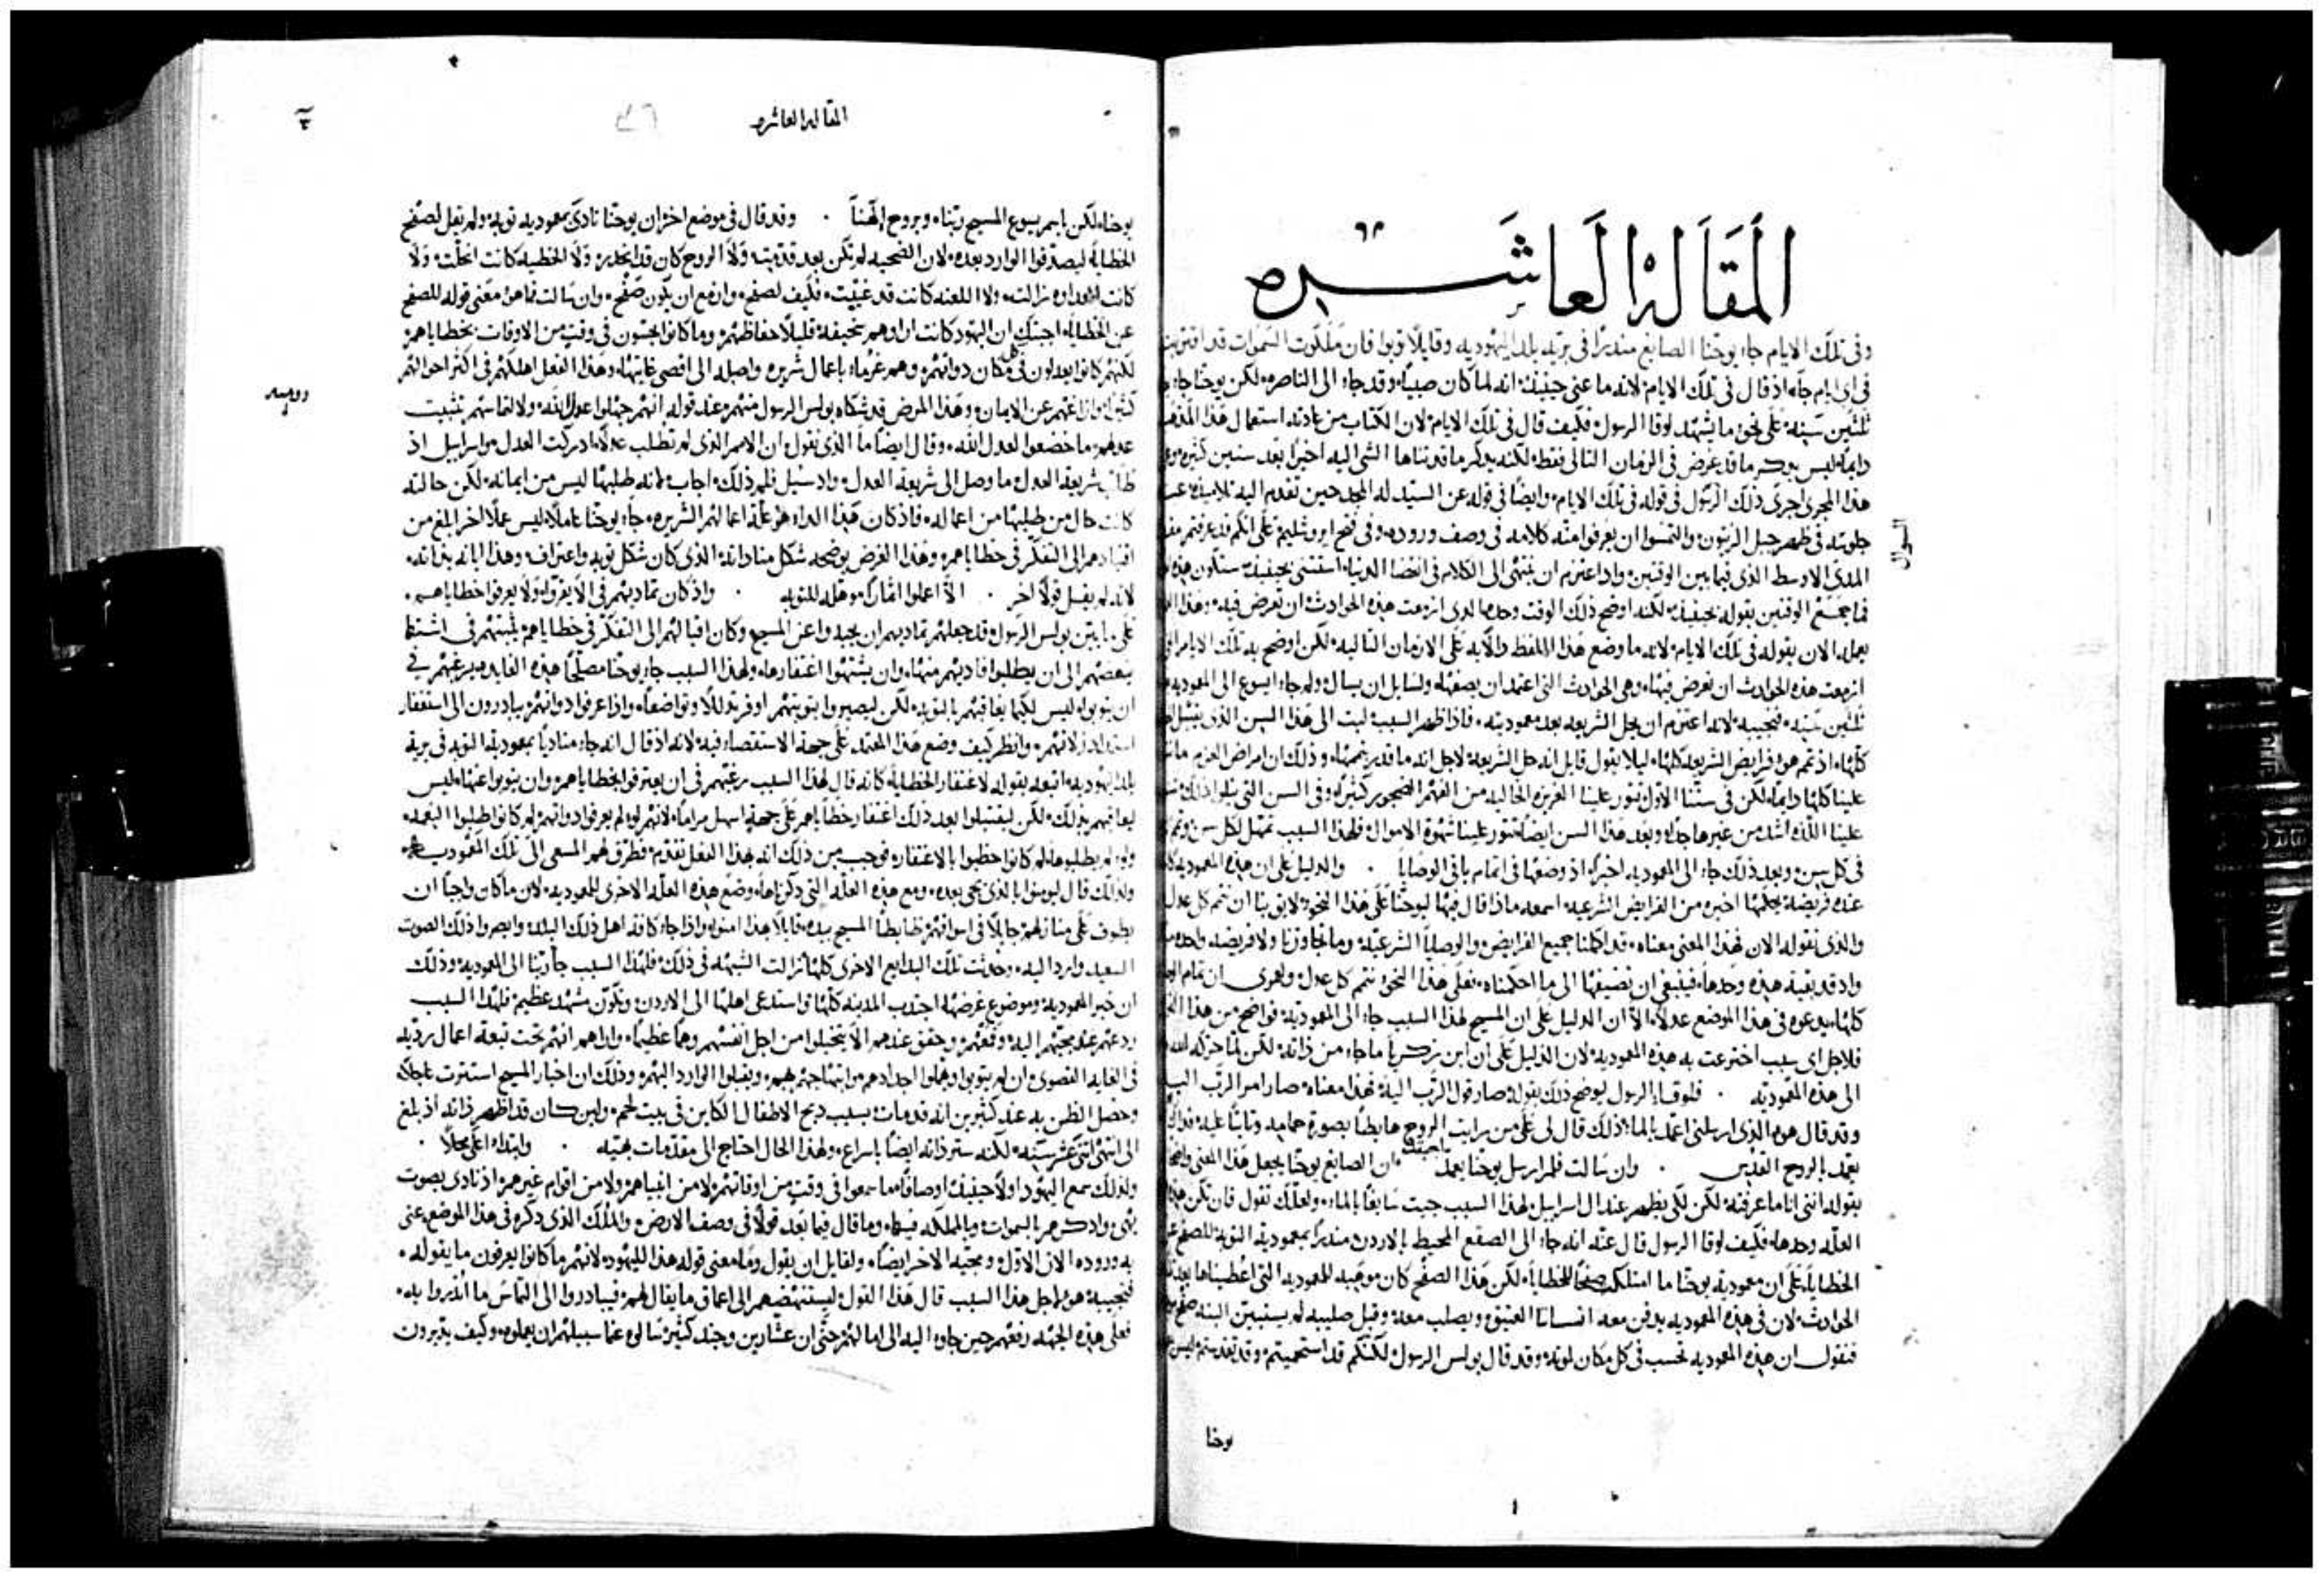 المقاله العاشره
وفى تلك الايام جاء يوحنا الصابغ منذرًا فى بريه بلد اليهوديه وقايلًا توبوا فان ملكوت السموات قد اقتربت
فى اى ايام جاء اذ قال فى تلك الايام لانه ما عنى حينيذ انه لما كان صبيًا وقد جاء الى الناصره لكن يوحنا جاء
ثلثين سنه على نحو ما يشهد لوقا الرسول فكيف قال فى تلك الايام لان الكتاب من عادته استعمال هذا المذهب
دايمًا ليس يذكر ما قد عرض فى الزمان التالى فقط لكنه يذكر ما قد تناها الشى اليه اخيرًا بعد سنين كثيره
هذا المجرى اجرى ذلك الرسول فى قوله فى تلك الايام وايضًا فى قوله عن السيد له المجد حين تقدم اليه تلاميذه عند
جلوسه فى ظهر جبل الزيتون والتمسوا ان يعرفوا منه كلامه فى وصف وروده وفى فتح اورشليم على انكم قد عرفتم
السوال
المدى الاوسط الذى فيما بين الوقتين واذ اعتزم ان ينتهى الى الكلام فى انقضا الدنيا استثنى بحينيذ ستكون هذه
فما جمع الوقتين بقوله بحينيذ لكنه اوضح ذلك الوقت وحده الذى ازمعت هذه الحوادث ان تعرض فيه وهذا
يعمله الان بقوله فى تلك الايام لانه ما وضع هذا اللفظ دلاله على الازمان التاليه لكن اوضح به تلك الايام التى
ازمعت هذه الحوادث ان تعرض فيها وهى الحوادث التى اعتمد ان يصفها ولسايل ان يسال ولم جاء ايسوع الى المعموديه
ثلثين سنه فنجيبه لانه اعتزم ان يحل الشريعه بعد معموديته فلذا ظهر السبب لبث الى هذا السن الذى يقبل
كلها اذ تمم هو فرايض الشريعه كلها ليلا يقول قايل انه حل الشريعه لاجل انه ما قدر يتممها وذلك ان امراض العزم ما
علينا كلها دايمًا لكن فى سننا الاول تثور علينا الغريزه الخاليه من الفهم الضجور كثيرًا وفى السن التى تتلوا ذلك
علينا اللذه اشد من غيرها جدًا وبعد هذا السن ايضًا تثور علينا شهوة الاموال فلهذا السبب تمهل لكل سن
فى كل سن وبعد ذلك جاء الى المعموديه اخيرًا اذ وضعها فى اتمام باقى الوصايا . والدليل على ان هذه المعموديه
عنده فريضه يجعلها اخيره من الفرايض الشرعيه اسمعه ماذا قال فيها ليوحنا على هذا النحو لايق بنا ان نتمم كل عدل
والذى نقوله الان لهذا المعنى معناه قد اكملنا جميع الفرايض والوصايا الشرعيه وما تجاوزنا ولا فريضه واحده
واذ قد بقيه هذه وحدها فينبغى ان نضيفها الى ما احكمناه فعلى هذا النحو نتمم كل عدل ولعمرى ان تمام
كلها يدعوه فى هذا الموضع عدلًا الا ان الدليل على ان المسيح لهذا السبب جاء الى المعموديه فواضح من هذا
فلاجل اى سبب اخترعت به هذه المعموديه لان الدليل على ان ابن زكريا ما جاء من ذاته لكن لما حركه الله
الى هذه المعموديه . فلوقا الرسول يوضح ذلك بقوله صار قول الرب اليه فهذا معناه صار امر الرب اليه
وقد قال هو الذى ارسلنى اعمد بالماء ذلك قال لى على من رايت الروح هابطًا بصورة حمامه وثابتًا عليه
يعمد بالروح القدس . وان سالت فلم ارسل يوحنا يعمد ان الصابغ يوحنا يجعل هذا المعنى واضحًا
بقوله اننى انا ما عرفته لكن لكى يظهر عند ال اسراييل لهذا السبب جيت سابقًا بالماء ولعلك تقول فان تكن هذه
العله وحدها فكيف لوقا الرسول قال عنه انه جاء الى الصقع المحيط بالاردن منذرًا بمعموديه التوبه للصفح عن
الخطايا على ان معموديه يوحنا ما امتلكت صفحًا للخطايا لكن هذا الصفح كان موهبه للمعموديه التى اعطيناها بعد
الحوادث لان فى هذه المعموديه يدفن معه انساننا العتيق ويصلب معه وقبل صليبه لم يستبين البته صفح
فنقول ان هذه المعموديه تحسب فى كل مكان لموته وقد قال بولس الرسول لكنكم قد استحميتم وقد تقدستم ليس
يوحنا
المقاله العاشره
٣
يوحنا لكن باسم يسوع المسيح ربنا وبروح الهنا . وقد قال فى موضع اخر ان يوحنا نادى بمعموديه توبه ولم تقل لصفح
الخطايا ليصدقوا الوارد بعده لان الضحيه لم تكن بعد قدمت ولا الروح كان قد انحدر ولا الخطيه كانت انحلت ولا
كانت العداوه زالت ولا اللعنه كانت قد غيبت فكيف لصفح وازمع ان يكون صفح وان سالت فما هو معنى قوله للصفح
عن الخطايا اجبتك ان اليهود كانت اراوهم سخيفه قليلًا حفاظهم وما كانوا يحسون فى وقتٍ من الاوقات بخطاياهم
لكنهم كانوا يعدلون فى كل مكان ذواتهم وهم غرماء باعمال شريره واصله الى اقصى غايتها وهذا الفعل اهلكهم فى اكثر احوالهم
كثيرًا وازاغهم عن الايمان وهذا المرض قد شكاه بولس الرسول منهم عند قوله انهم جهلوا عدل الله ولالتماسهم تثبيت
روميه
عدلهم ما خضعوا لعدل الله وقال ايضًا ما الذى نقول ان الامم الذى لم تطلب عدلًا ادركت العدل واسراييل اذ
طالب شريعة العدل ما وصل الى شريعة العدل واذ سيل فلم ذلك اجاب لانه طلبها ليس من ايمانه لكن حالته
كانت حال من طلبها من اعماله فاذ كان هذا الداء هو علة اعمالهم الشريره جاء يوحنا عاملًا ليس عملًا اخر ابلغ من
اقتيادهم الى التفكر فى خطاياهم وهذا الغرض يوضحه شكل مناداته الذى كان شكل توبه واعتراف وهذا ابانه بنداته
لانه لم يقل قولًا اخر . الا اعملوا اثمارًا موهله للتوبه . واذ كان تماديهم فى الا يعرفوا ولا يعرفوا خطاياهم
على ما بين بولس الرسول قد جعلهم تماديهم ان يحيدوا عن المسيح وكان اقبالهم الى التفكر فى خطاياهم يثبتهم فى اشتطا
بعضهم الى ان يطلبوا فاديهم منها وان يشتهوا اغتفارها ولهذا السبب جاء يوحنا مصلحًا هذه الغايه ويرغبهم فى
ان يتوبوا ليس لكيما يعاقبهم بالتوبه لكن ليصيروا بتوبتهم اوفر تذللًا وتواضعًا واذا عرفوا ذواتهم يبادرون الى استغفار
زلاتهم وانظر كيف وضع هذا المعتمد على جهة الاستقصاء فيه لانه اذ قال انه جاء مناديًا بمعموديه التوبه فى برية
بلد اليهوديه اتبعه بقوله لاغتفار الخطايا كانه قال لهذا السبب رغبهم فى ان يعترفوا بخطاياهم وان يتوبوا عنها ليس
يعاقبهم بذلك لكن ليقتبلوا بعد ذلك اغتفار خطاياهم على جهةٍ اسهل مرامًا لانهم لو لم يعرفوا ذواتهم لم كانوا طلبوا النعمه
ولو لم يطلبوها لم كانوا حظيوا بالاغتفار فوجب من ذلك انه لهذا الفعل تقدم فطرق لهم السعى الى تلك المعموديه
ولذلك قال ليومنوا بالذى يجى بعده ومع هذه العله التى ذكرناها وضع هذه العله الاخرى للمعموديه لان ما كان واجبًا ان
يطوف على منازلهم جايلًا فى اسواقهم ضابطًا المسيح بيده قايلًا بهذا امنوا واذا جاء كافة اهل ذلك البلد وابصروا ذلك الصوت
السعيد وارد اليه وحدثت تلك البدايع الاخرى كلها ازالت الشبهه فى ذلك فلهذا السبب جاء ربنا الى المعموديه وذلك
ان خبر المعموديه وموضوع غرضها اجتذب المدينه كلها واستدعى اهلها الى الاردن وتكون مشهد عظيم فلهذا السبب
ردعهم عند مجيهم اليه وقمعهم وحقق عندهم الا يتخيلوا من اجل انفسهم وهمًا عظيمًا واراهم انهم تحت تبعة اعمال رديه
فى الغايه القصوى ان لم يتوبوا ويهملوا اجدادهم وابتهاجهم بهم ويقبلوا الوارد اليهم وذلك ان اخبار المسيح استترت عاجلًا
وحصل الظن به عند كثيرين انه قد مات بسبب ذبح الاطفال الكاين فى بيت لحم ولين كان قد اظهر ذاته اذ بلغ
الى انتهى اثنى عشر سنه لكنه ستر ذاته ايضًا باسراع ولهذا الحال احتاج الى مقدمات بهيه . وابتداء اعلى محلًا .
ولذلك سمع اليهود اولًا حينيذ اوصافًا ما سمعوا فى وقتٍ من اوقاتهم لا من انبياهم ولا من اقوام غيرهم اذ نادى بصوت
بهى واذكرهم بالسموات وبالمملكه فيها وما قال فيما بعد قولًا فى وصف الارض والملك الذى ذكره فى هذا الموضع عنى
به وروده الان الاول ومجيه الاخر ايضًا ولقايل ان يقول وما معنى قوله هذا لليهود لانهم ما كانوا يعرفون ما يقوله
فنجيبه هو لاجل هذا السبب قال هذا القول ليستنهضهم الى اعماق ما يقال لهم فيبادروا الى التماس ما انذروا به
فعلى هذه الجهه رفعهم حين جاوا اليه الى امالهم حتى ان عشارين وجند كثير سالوه عما سبيلهم ان يعملوه وكيف يدبرون